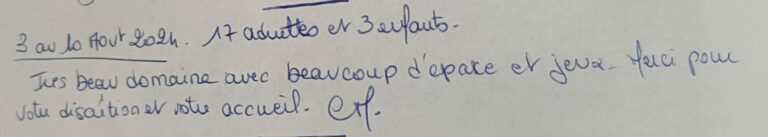 3 au 10 Aout 2024. 17 adultes et 3 enfants.
Très beau domaine avec beaucoup d'epace et jeux. Merci pour
votre discrétion et votre accueil.